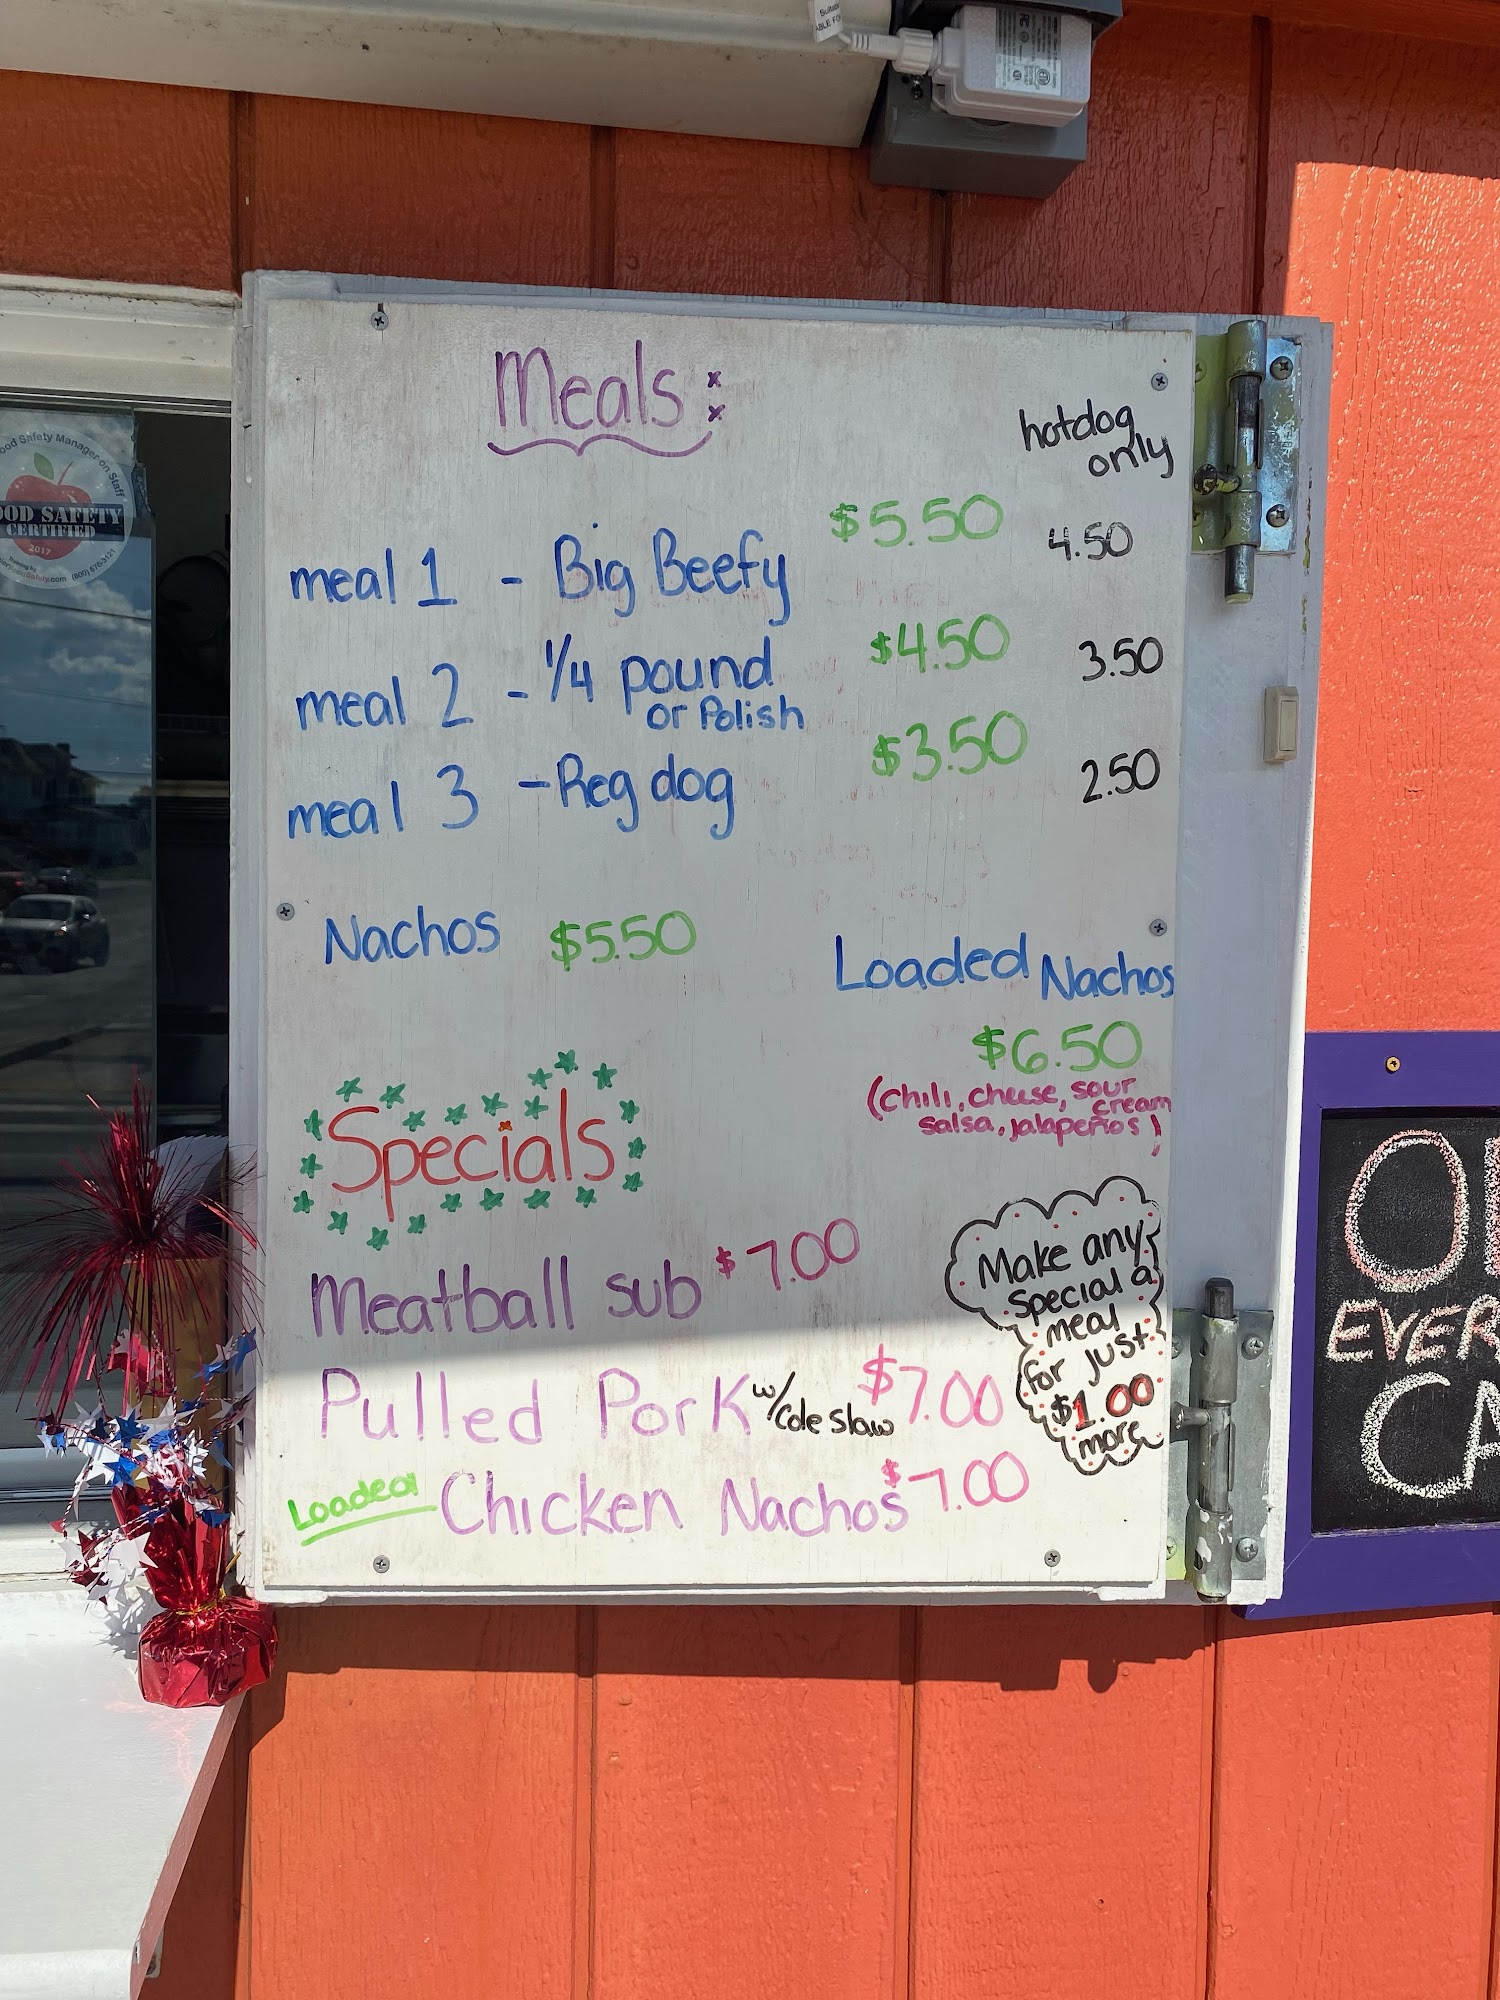 Meals:
hotdog
only
meal 1 - Big Beefy $5.50 4.50
meal 2 - 1/4 pound $4.50 3.50
or Polish
meal 3 - Reg dog $3.50 2.50
Nachos $5.50
Loaded Nachos
$6.50
(chili, cheese, sour
cream
salsa, jalapeños)
Specials
Meatball sub $7.00
Pulled Pork w/Cole slaw $7.00
Loaded Chicken Nachos $7.00
Make any
special a
meal
for just
$1.00
more
ood Safety Manager on Staff
OOD SAFETY
CERTIFIED
2017
(800) 676-3121
EVER
CA